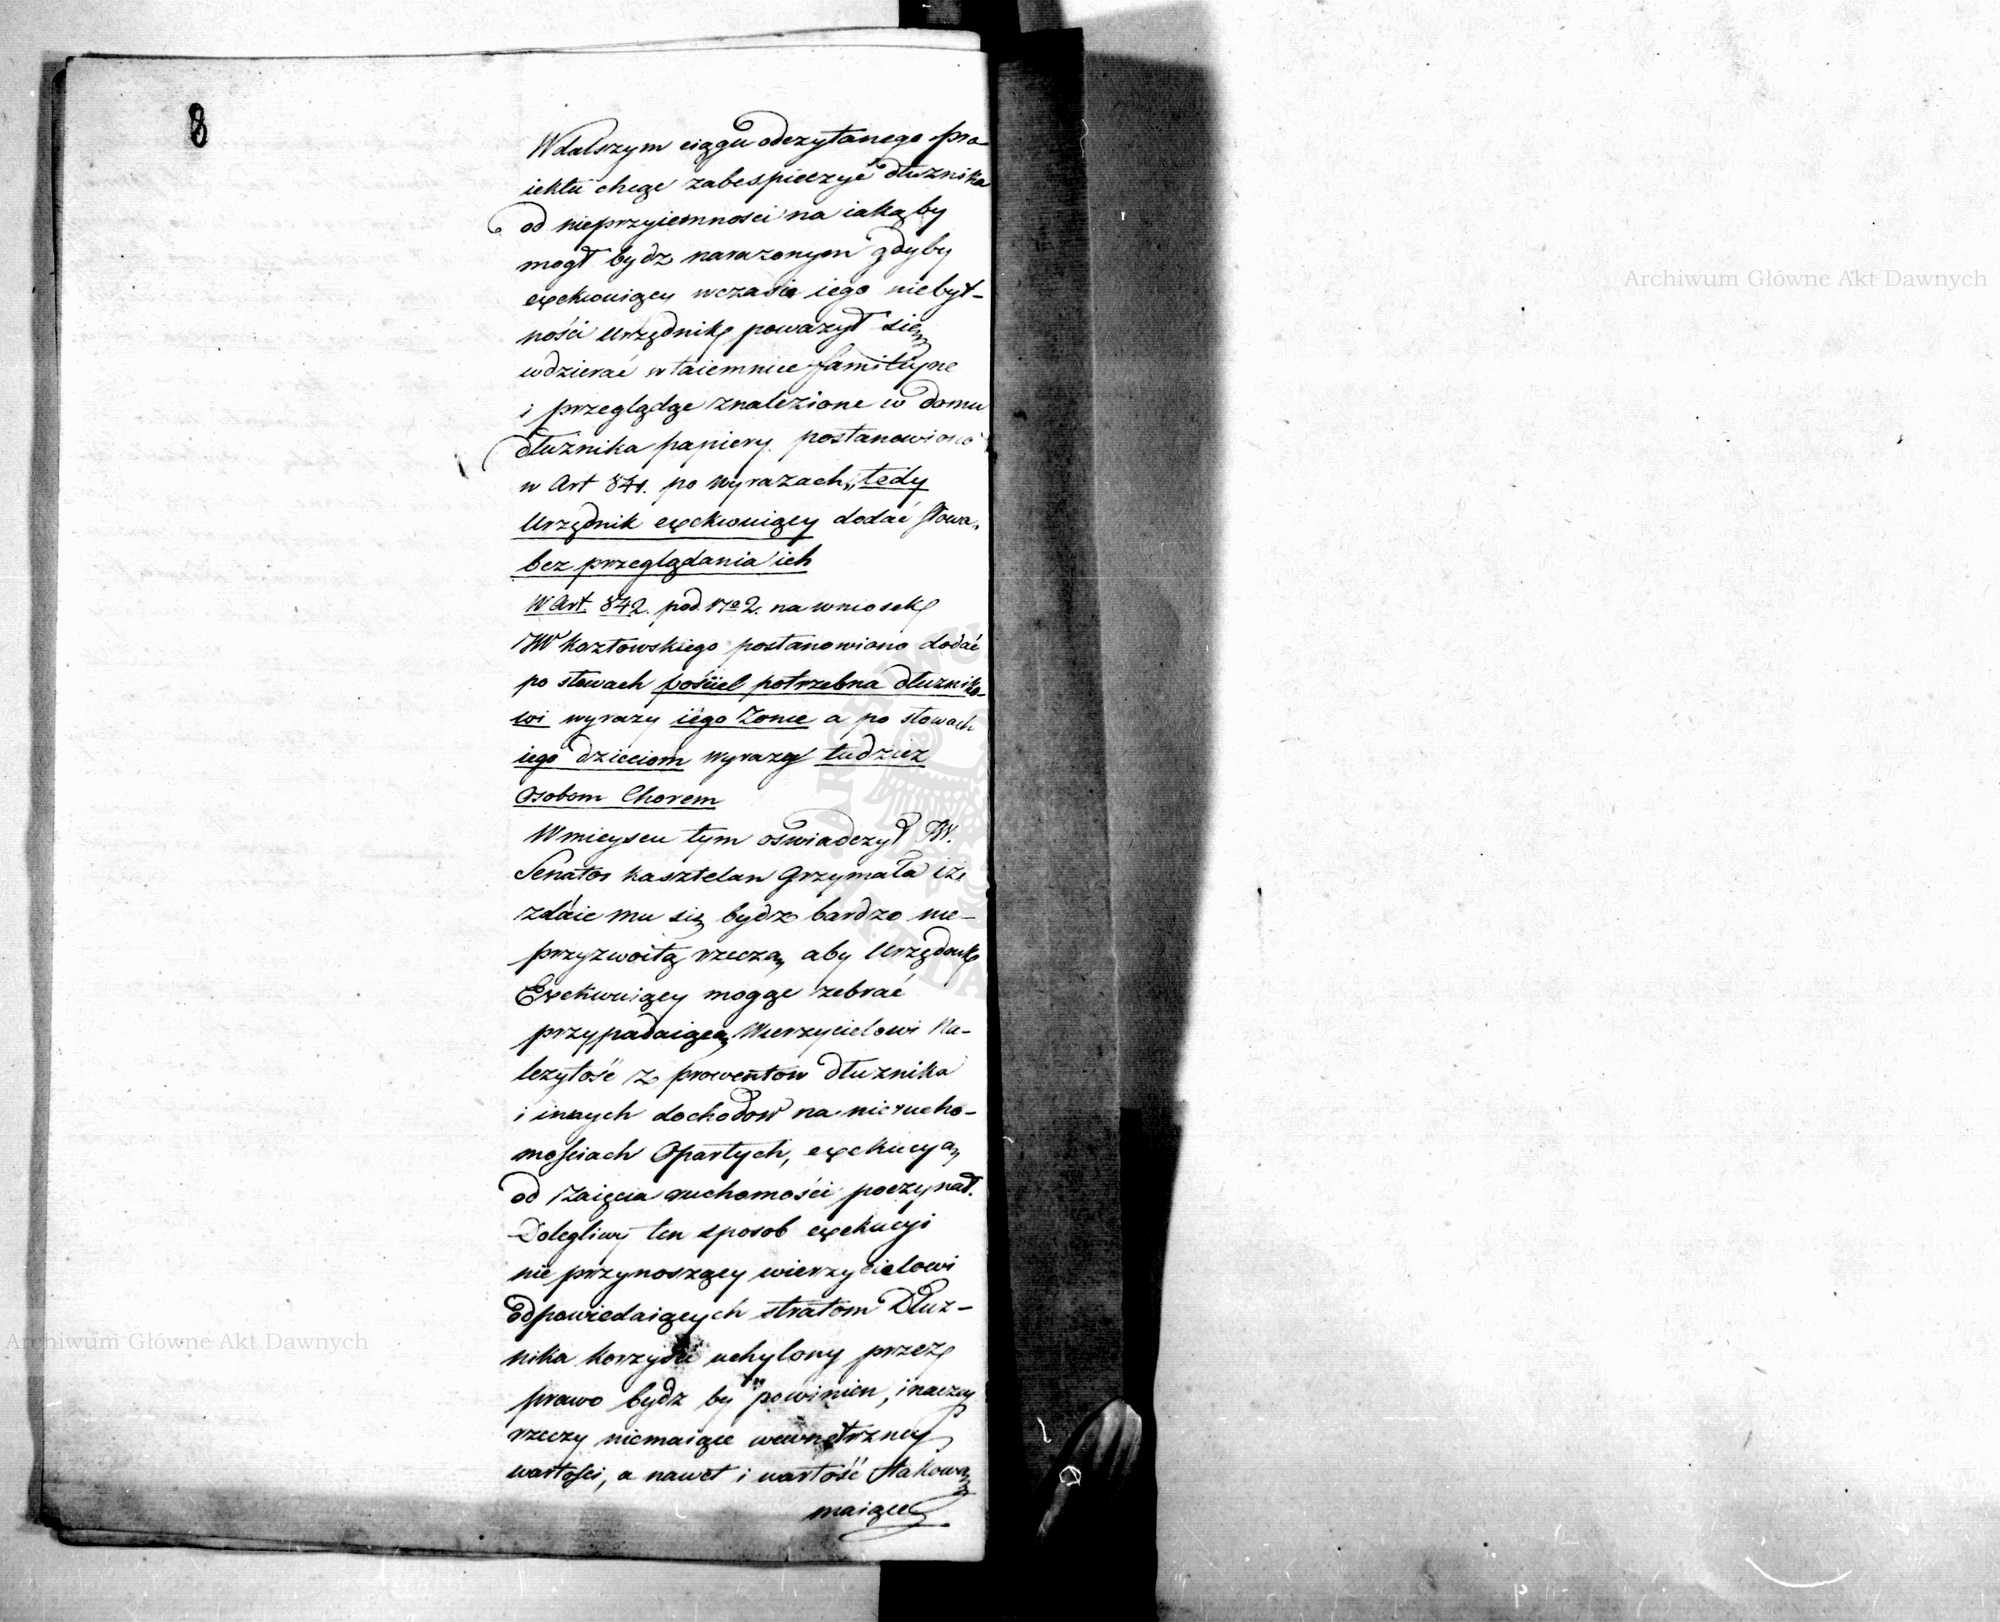 8
W dalszym ciągu odczytanego pro-
iektu chcąc zabespieczyć dłużnika
od nieprzyiemnosci na iaką by
mogł bydz narazonym gdyby
exekwuiący w czasie iego niebyt-
ności Urzędnik poważył się
wdzierać w taiemnice familijne
i przeglądać znalezione w domu
dłużnika papiery. postanowiono
w Art 841. po wyrazach „tedy
Urzędnik exekwuiący dodać słowa „
bez przeglądania ich
W Art. 842. pod Nro 2. na wniosek
JW Kozłowskiego postanowiono dodać
po słowach pościel potrzebna dłużniko-
wi wyrazy iego Zonie a po słowach
iego dzieciom wyrazy tudzież
Osobom Chorem
W mieyscu tym oświadczył JW.
Senator Kasztelan Grzymała iż
zdaie mu się bydz bardzo nie-
przyzwoitą rzeczą, aby Urzędnik
Exekwuiący mogąc zebrać
przypadaiącą Wierzycielowi Na-
leżytość z prowentow dłużnika
i innych dochodow na nierucho-
mościach Opartych, exekucyą
od Zaięcia ruchomości poczynał.
Dolegliwy ten sposob exekucyi
nie przynoszący wierzycielowi
odpowiedaiących stratom Dłuż-
nika korzyści uchylony przez
prawo bydz by powinien, inaczey
rzeczy niemaiące wewnętrzney
wartości, a nawet i wartość takową
maiące
Archiwum Główne Akt Dawnych
Archiwum Główne Akt Dawnych